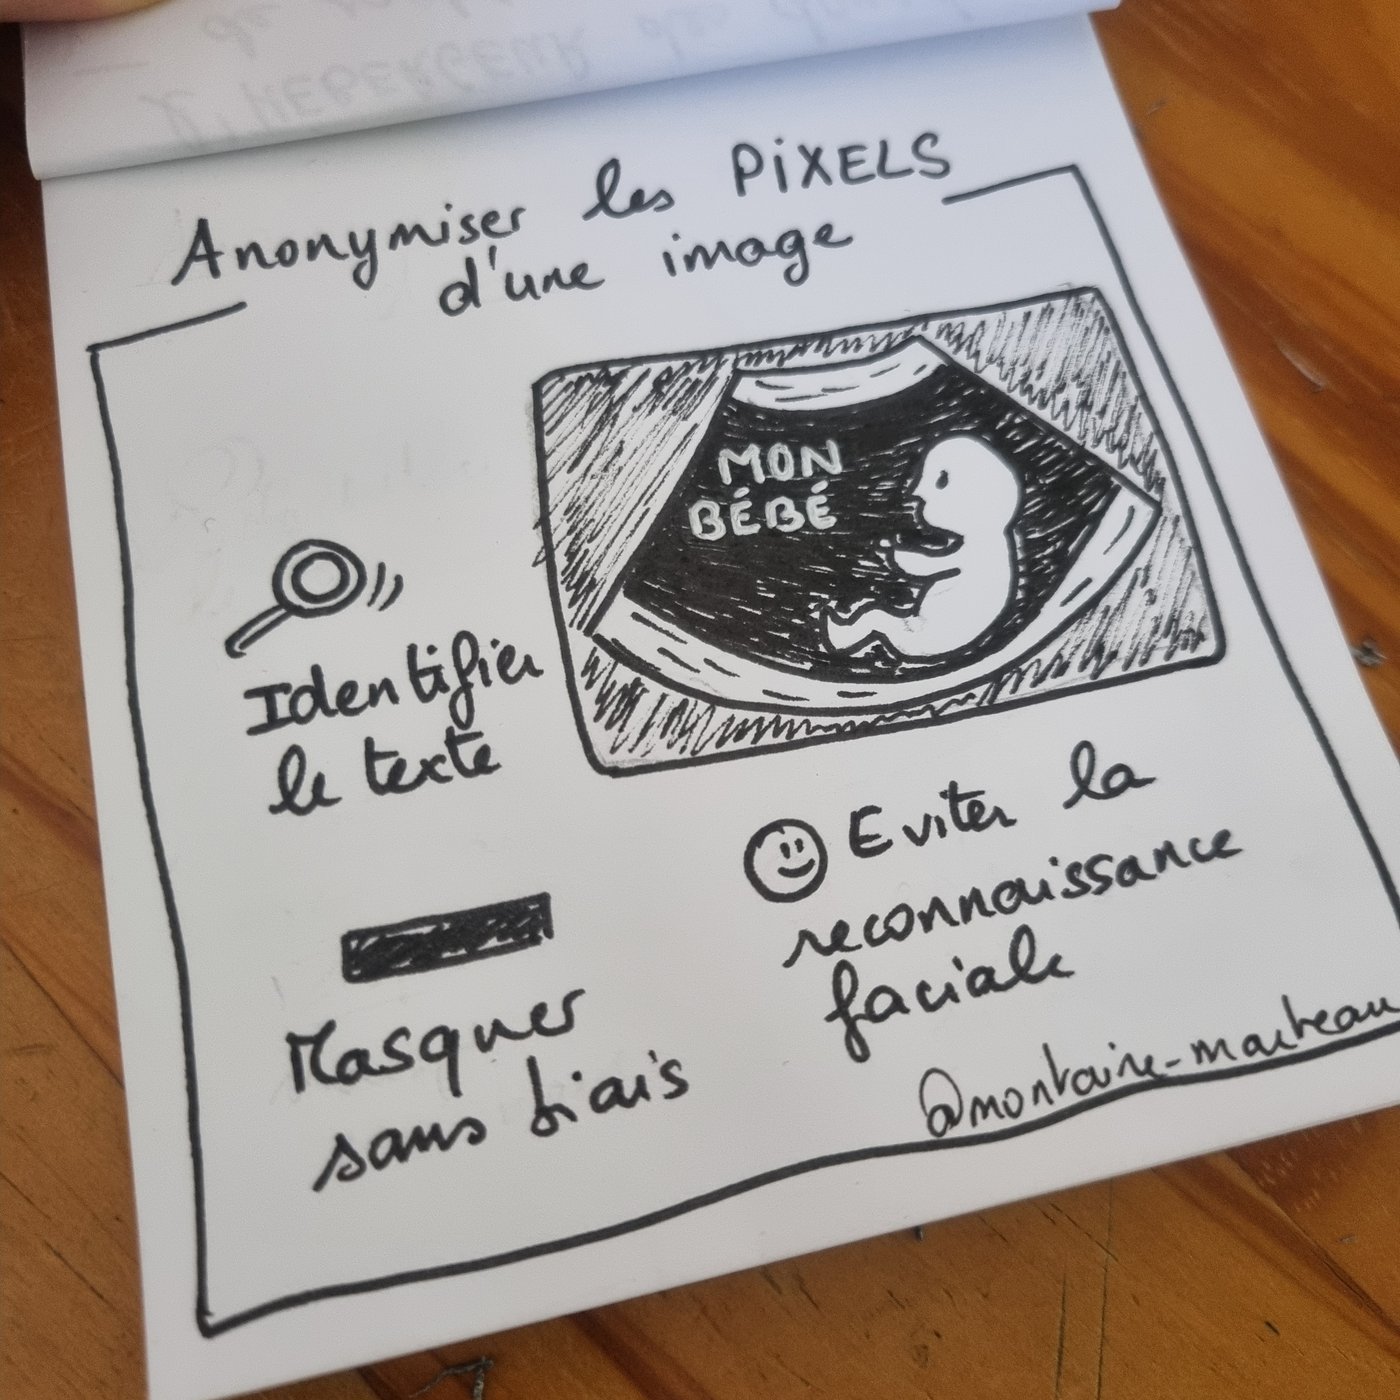 Anonymiser les PiXELS
d'une image
MON
BÉBÉ
Identifier
le texte
Eviter la
reconnaissance
faciale
Masquer
sans biais
@montaine-marteau